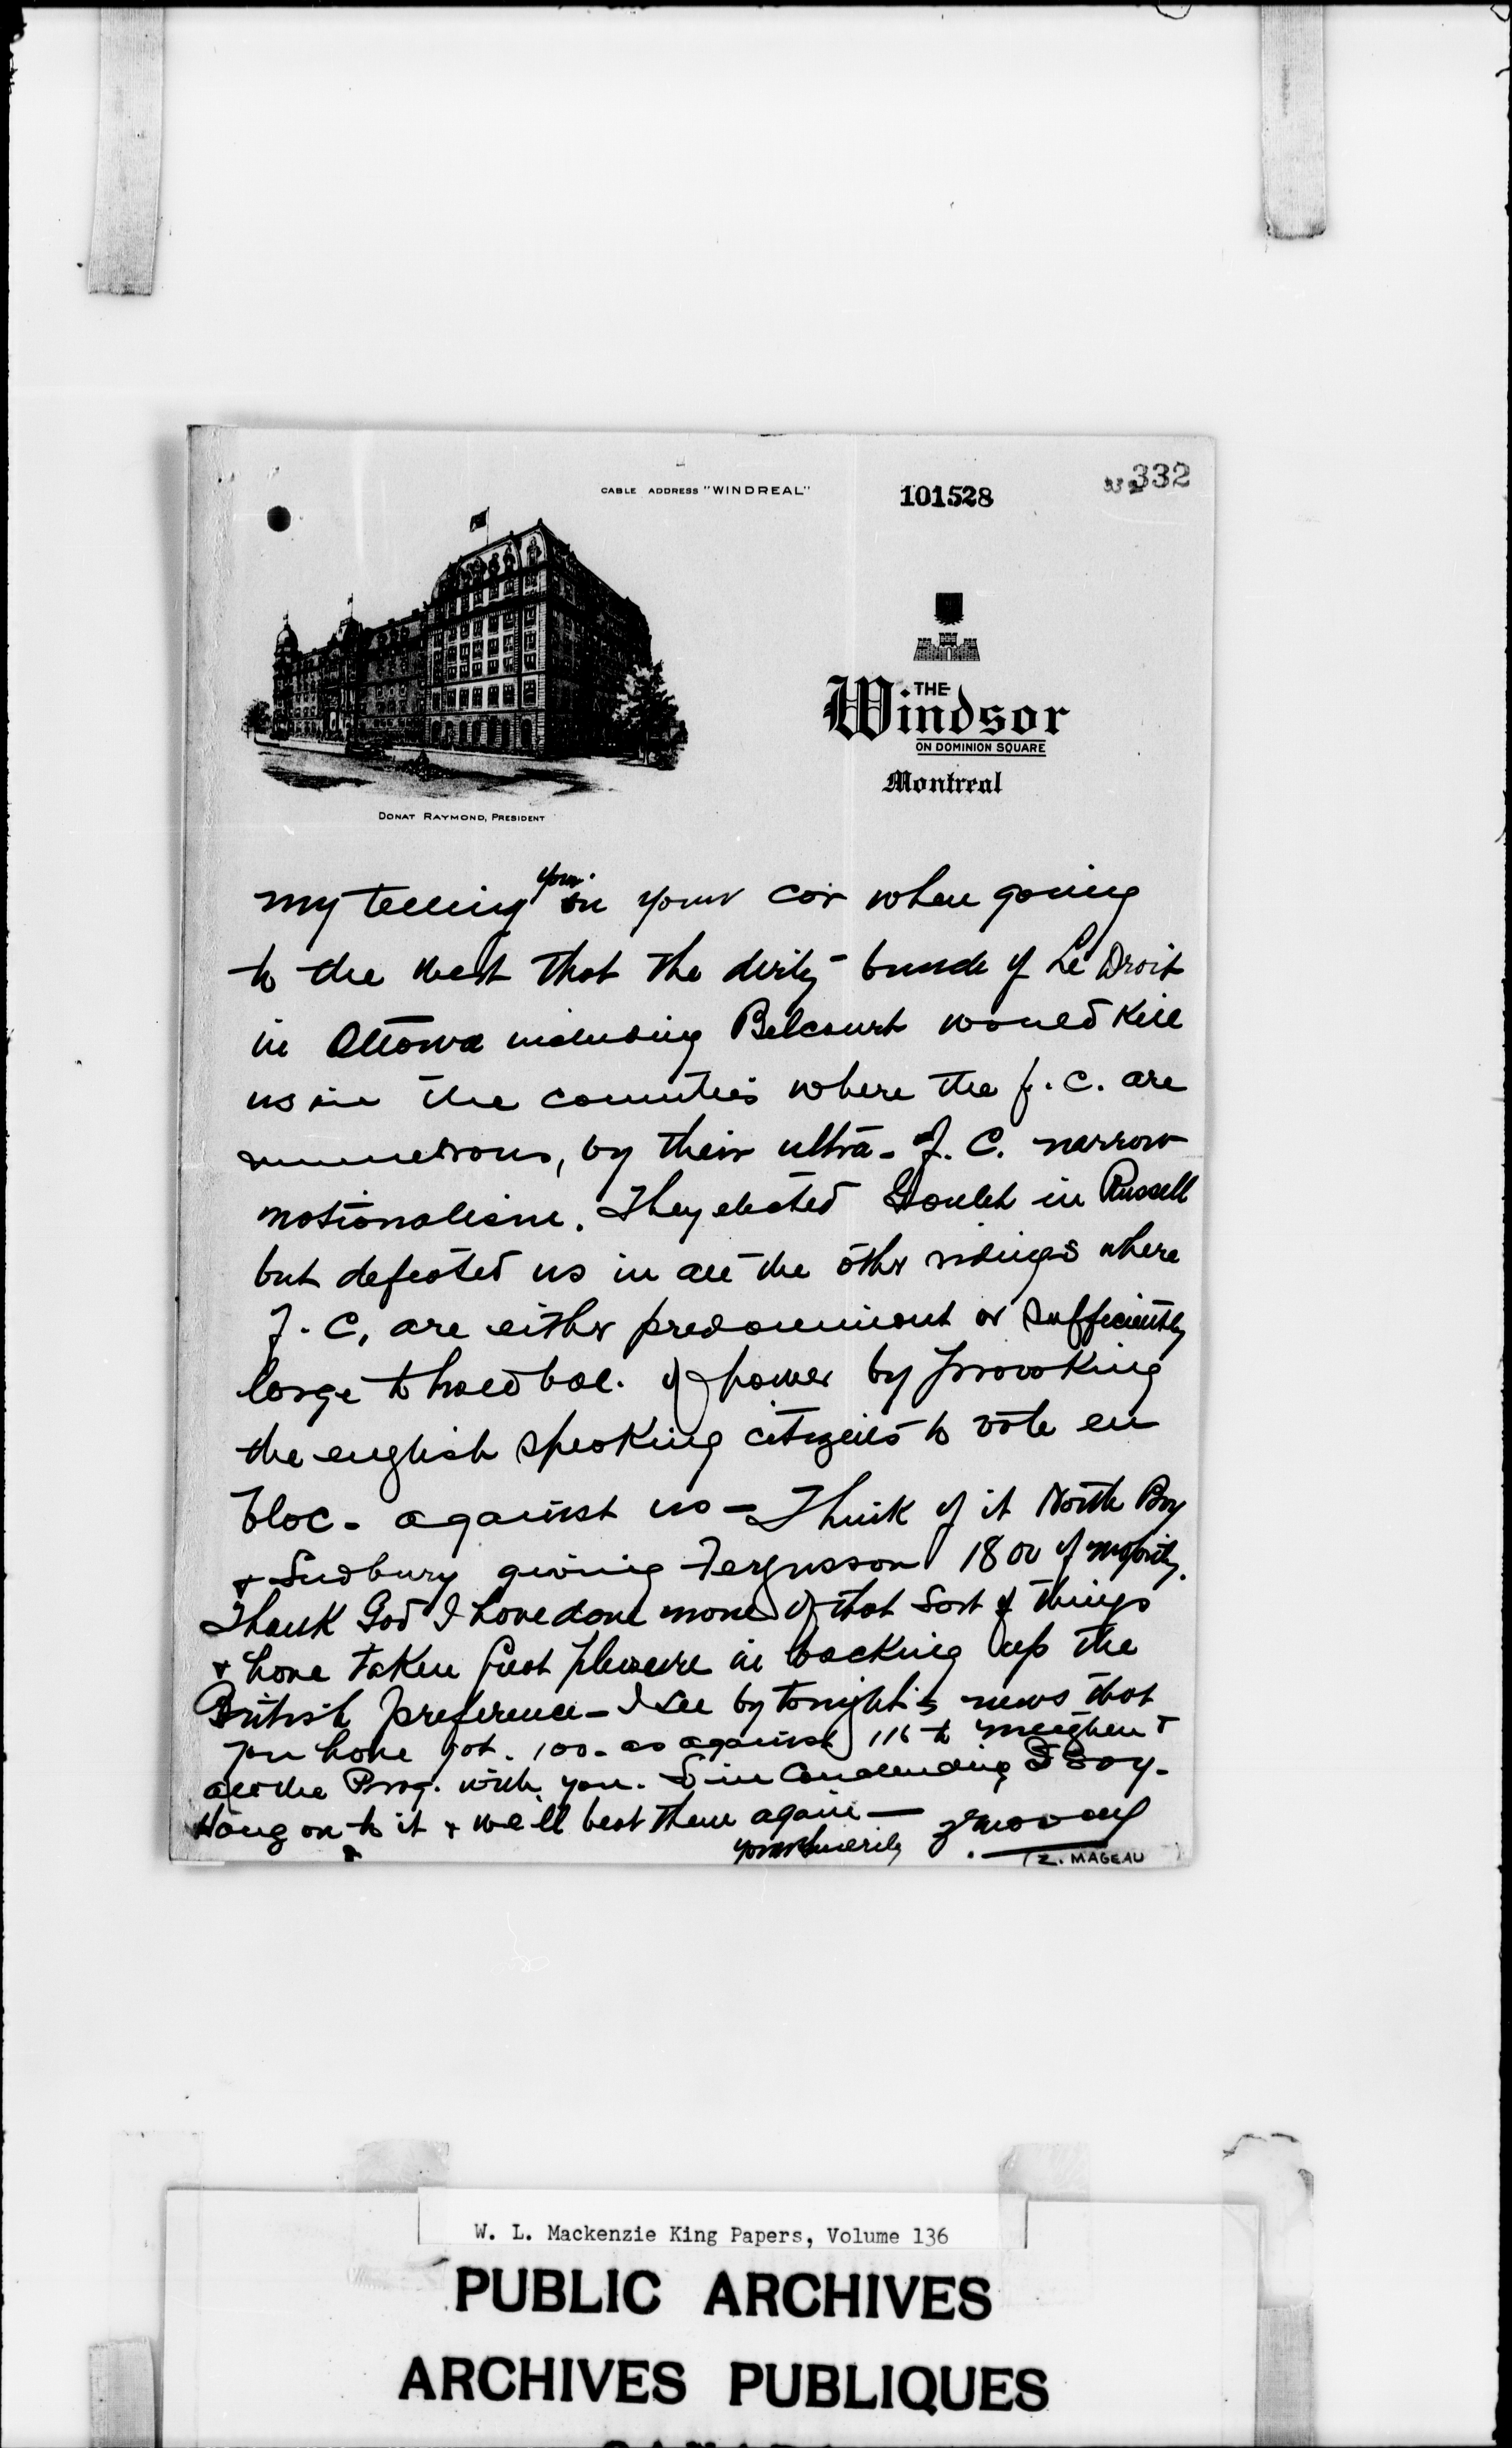 CABLE ADDRESS "WINDREAL"
101528
332
THE
Windsor
ON DOMINION SQUARE
Montreal
DONAT RAYMOND, PRESIDENT
my telling you in your car when going
to the west that the dirty bunch of Le Droit
in Ottawa including Belcourt would kill
us in the counties where the f. C. are
numerous, by their ultra - F. C. narrow
nationalism. They elected Goulet in Russell
but defeated us in all the other ridings where
F. C. are either predominant or sufficiently
large to hold bal. of power by provoking
the english speaking citizens to vote en
bloc - against us - Think of it North Bay
+ Sudbury giving Fergusson 1800 of majority.
Thank God I have done none of that sort of things
+ have taken great pleasure in backing up the
British preference - I see by tonight's news that
you have got. 100 - as against 116 to Meighen +
all the Prog. with you. So in concluding I say -
Hang on to it + we'll beat them again -
yours sincerely
(Z. MAGEAU)
W. L. Mackenzie King Papers, Volume 136
PUBLIC ARCHIVES
ARCHIVES PUBLIQUES